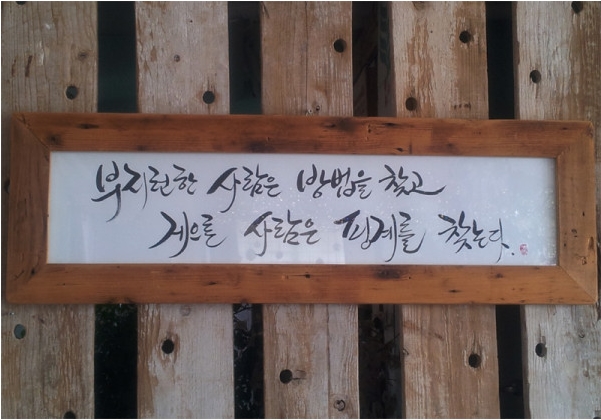 부지런한 사람은 방법을 찾고
게으른 사람은 핑계를 찾는다.